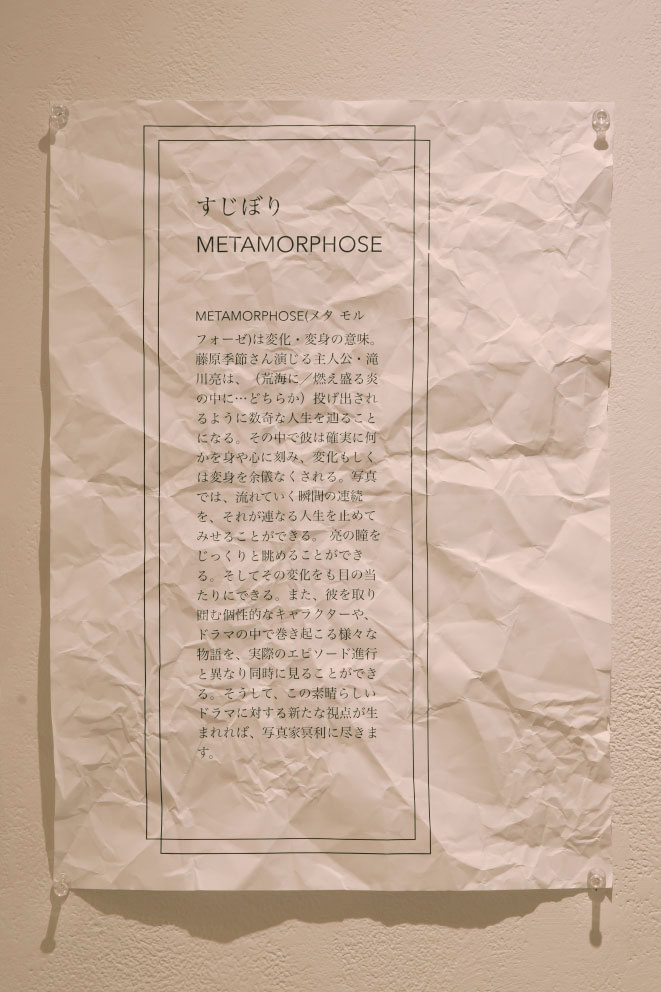 すじぼり
METAMORPHOSE
METAMORPHOSE(メタ モル
フォーゼ)は変化・変身の意味。
藤原季節さん演じる主人公・滝
川亮は、（荒海に／燃え盛る炎
の中に…どちらか）投げ出され
るように数奇な人生を辿ること
になる。その中で彼は確実に何
かを身や心に刻み、変化もしく
は変身を余儀なくされる。写真
では、流れていく瞬間の連続
を、それが連なる人生を止めて
みせることができる。 亮の瞳を
じっくりと眺めることができ
る。そしてその変化をも目の当
たりにできる。また、彼を取り
囲む個性的なキャラクターや、
ドラマの中で巻き起こる様々な
物語を、実際のエピソード進行
と異なり同時に見ることができ
る。そうして、この素晴らしい
ドラマに対する新たな視点が生
まれれば、写真家冥利に尽きま
す。